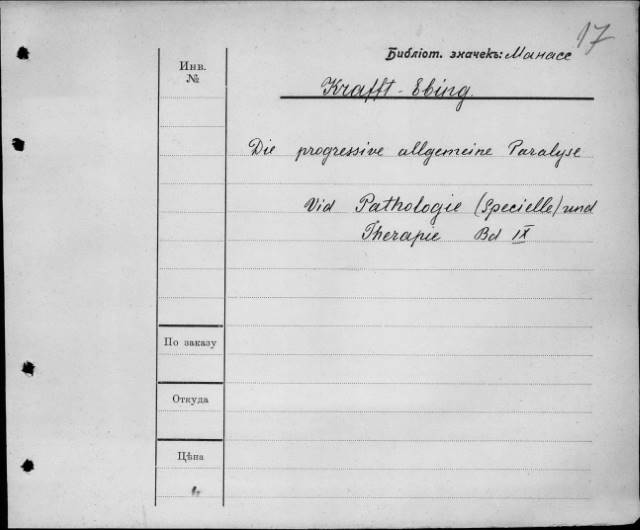 17
Библіот. значекъ: Манасс
Инв.
№
Krafft-Ebing
Die progressive allgemeine Paralyse
Vid Pathologie (Specielle) und
Therapie Bd IX
По заказу
Откуда
Цѣна